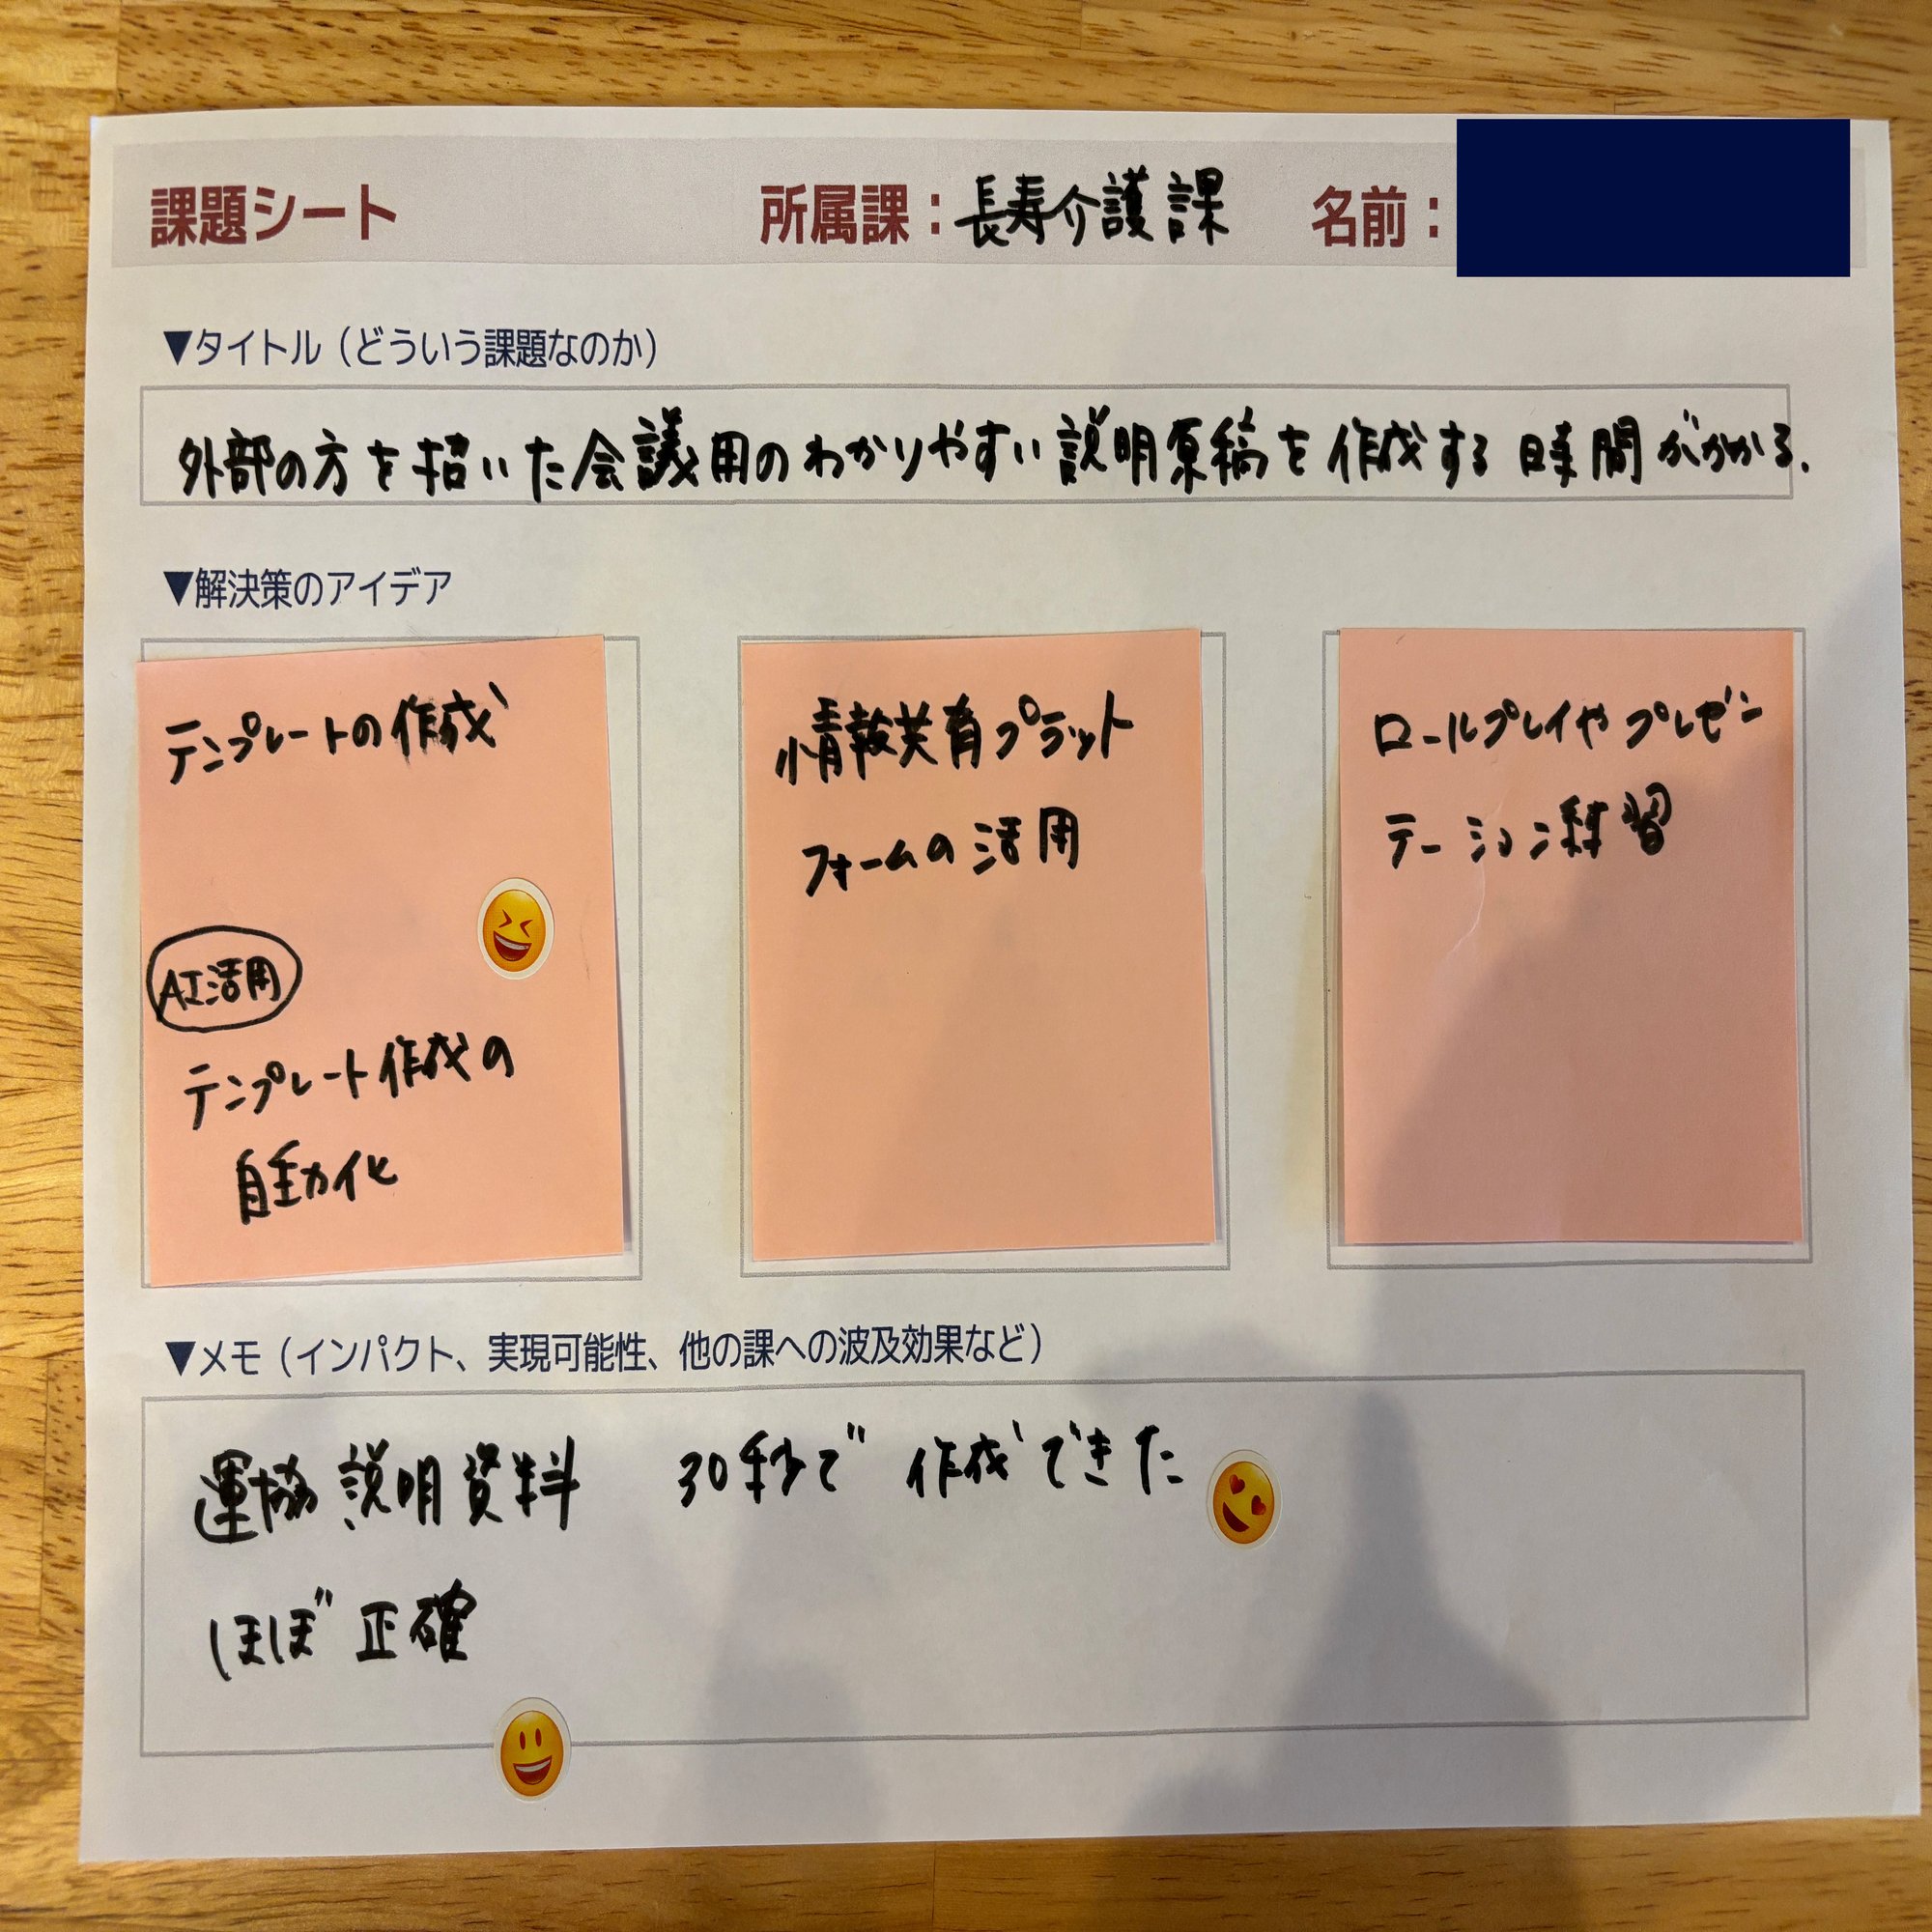 課題シート 所属課：長寿介護課 名前：
▼タイトル（どういう課題なのか）
外部の方を招いた会議用のわかりやすい説明原稿を作成する時間がかかる.
▼解決策のアイデア
テンプレートの作成
AI活用
テンプレート作成の
自動化
情報共有プラット
フォームの活用
ロールプレイやプレゼン
テーション練習
▼メモ（インパクト、実現可能性、他の課への波及効果など）
運協説明資料 30秒で作成できた
ほぼ正確